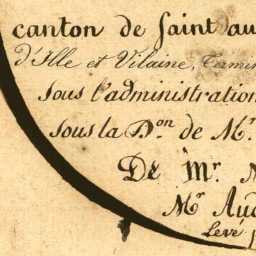 canton de Saint au
d'Ille et Vilaine,
Sous l'administration
Sous la D.on de Mr.
De Mr.
Mr Aud
Levé